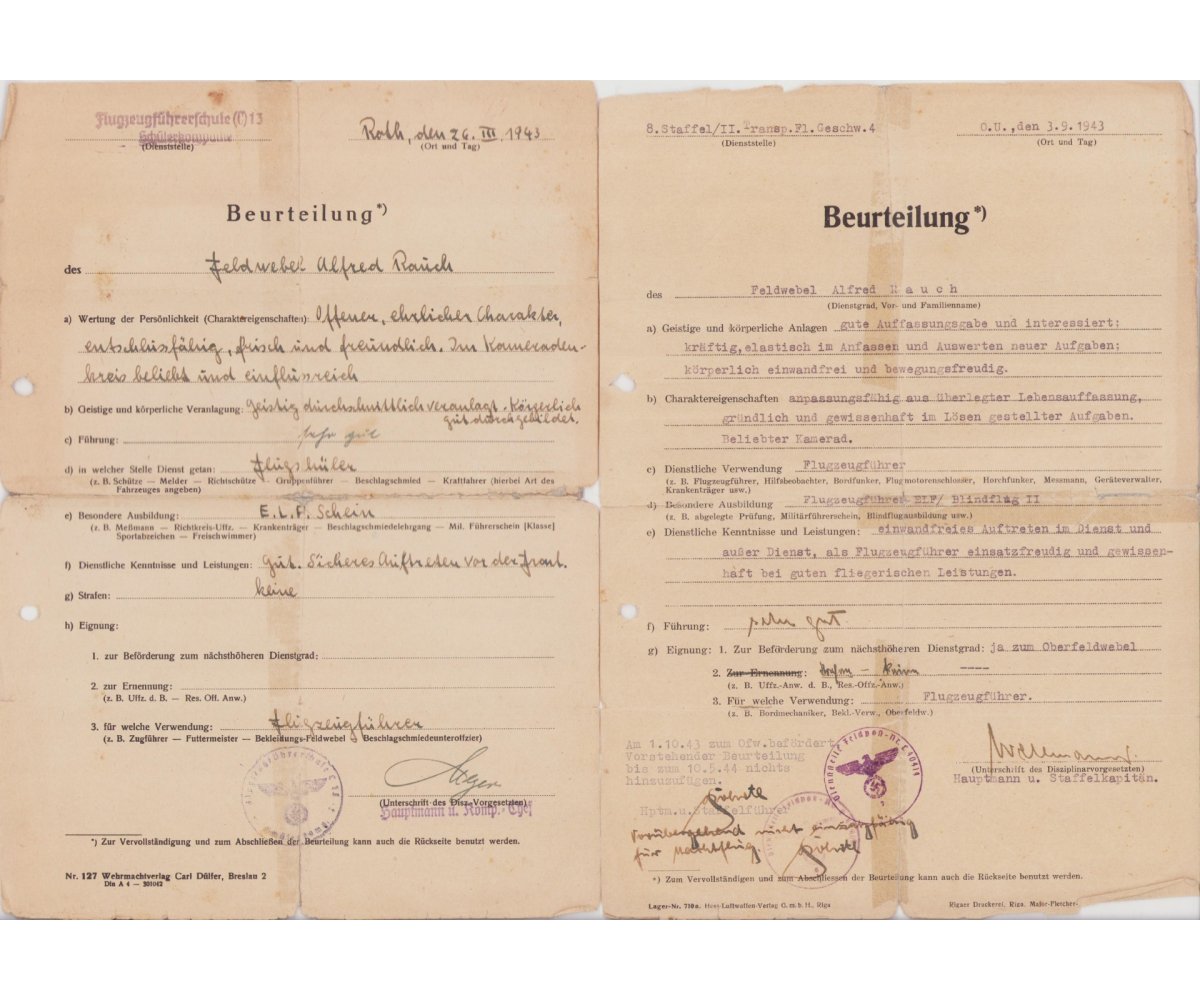 Flugzeugführerschule (C) 13
Schülerkompanie
(Dienststelle)
Roth, den 26. III. 1943
(Ort und Tag)
Beurteilung*)
des Feldwebel Alfred Rauch
a) Wertung der Persönlichkeit (Charaktereigenschaften): Offener, ehrlicher Charakter,
entschlußfähig, frisch und freundlich. Im Kameraden-
kreis beliebt und einflussreich
b) Geistige und körperliche Veranlagung: Geistig durchschnittlich veranlagt. Körperlich
gut durchgebildet.
c) Führung: sehr gut
d) in welcher Stelle Dienst getan: Flugschüler
(z. B. Schütze — Melder — Richtschütze — Gruppenführer — Beschlagschmied — Kraftfahrer (hierbei Art des
Fahrzeuges angeben)
e) Besondere Ausbildung: E.L.F. Schein
(z. B. Meßmann — Richtkreis-Uffz. — Krankenträger — Beschlagschmiedelehrgang — Mil. Führerschein [Klasse]
Sportabzeichen — Freischwimmer)
f) Dienstliche Kenntnisse und Leistungen: Gut. Sicheres Auftreten vor der Front.
g) Strafen: keine
h) Eignung:
1. zur Beförderung zum nächsthöheren Dienstgrad:
2. zur Ernennung:
(z. B. Uffz. d. B. — Res. Off. Anw.)
3. für welche Verwendung: Flugzeugführer
(z. B. Zugführer — Futtermeister — Bekleidungs-Feldwebel Beschlagschmiedeunteroffizier)
(Unterschrift des Disz.-Vorgesetzten)
Hauptmann u. Komp.-Chef
*) Zur Vervollständigung und zum Abschließen der Beurteilung kann auch die Rückseite benutzt werden.
Nr. 127 Wehrmachtverlag Carl Dülfer, Breslau 2
Din A 4 — 301042
8. Staffel/II. Transp.Fl.Geschw.4
(Dienststelle)
O.U., den 3.9.1943
(Ort und Tag)
Beurteilung*)
des Feldwebel Alfred Rauch
(Dienstgrad, Vor- und Familienname)
a) Geistige und körperliche Anlagen gute Auffassungsgabe und interessiert;
kräftig, elastisch im Anfassen und Auswerten neuer Aufgaben;
körperlich einwandfrei und bewegungsfreudig.
b) Charaktereigenschaften anpassungsfähig aus überlegter Lebensauffassung,
gründlich und gewissenhaft im Lösen gestellter Aufgaben.
Beliebter Kamerad.
c) Dienstliche Verwendung Flugzeugführer
(z. B. Flugzeugführer, Hilfsbeobachter, Bordfunker, Flugmotorenschlosser, Horchfunker, Messmann, Geräteverwalter,
Krankenträger usw.)
d) Besondere Ausbildung Flugzeugführer ELF/ Blindflug II
(z. B. abgelegte Prüfung, Militärführerschein, Blindflugausbildung usw.)
e) Dienstliche Kenntnisse und Leistungen: einwandfreies Auftreten im Dienst und
außer Dienst, als Flugzeugführer einsatzfreudig und gewissen-
haft bei guten fliegerischen Leistungen.
f) Führung: sehr gut
g) Eignung: 1. Zur Beförderung zum nächsthöheren Dienstgrad: ja zum Oberfeldwebel
2. Zur Ernennung: Strafen - keine ----
(z. B. Uffz.-Anw. d. B., Res.-Offz.-Anw.)
3. Für welche Verwendung: Flugzeugführer.
(z. B. Bordmechaniker, Bekl.-Verw., Oberfeldw.)
Am 1.10.43 zum Ofw. befördert
Vorstehender Beurteilung
bis zum 10.5.44 nichts
hinzuzufügen.
Hptm.u.Staffelführer
Dienststelle Feldpost-Nr. L 40414
(Unterschrift des Disziplinarvorgesetzten)
Hauptmann u. Staffelkapitän.
Vorübergehend nicht einsatzfähig
für Nachtflug.
*) Zum Vervollständigen und zum Abschliessen der Beurteilung kann auch die Rückseite benutzt werden.
Lager-Nr. 710a. Hess-Luftwaffen-Verlag G. m. b. H., Riga
Rigaer Druckerei, Riga, Major-Pletcher-